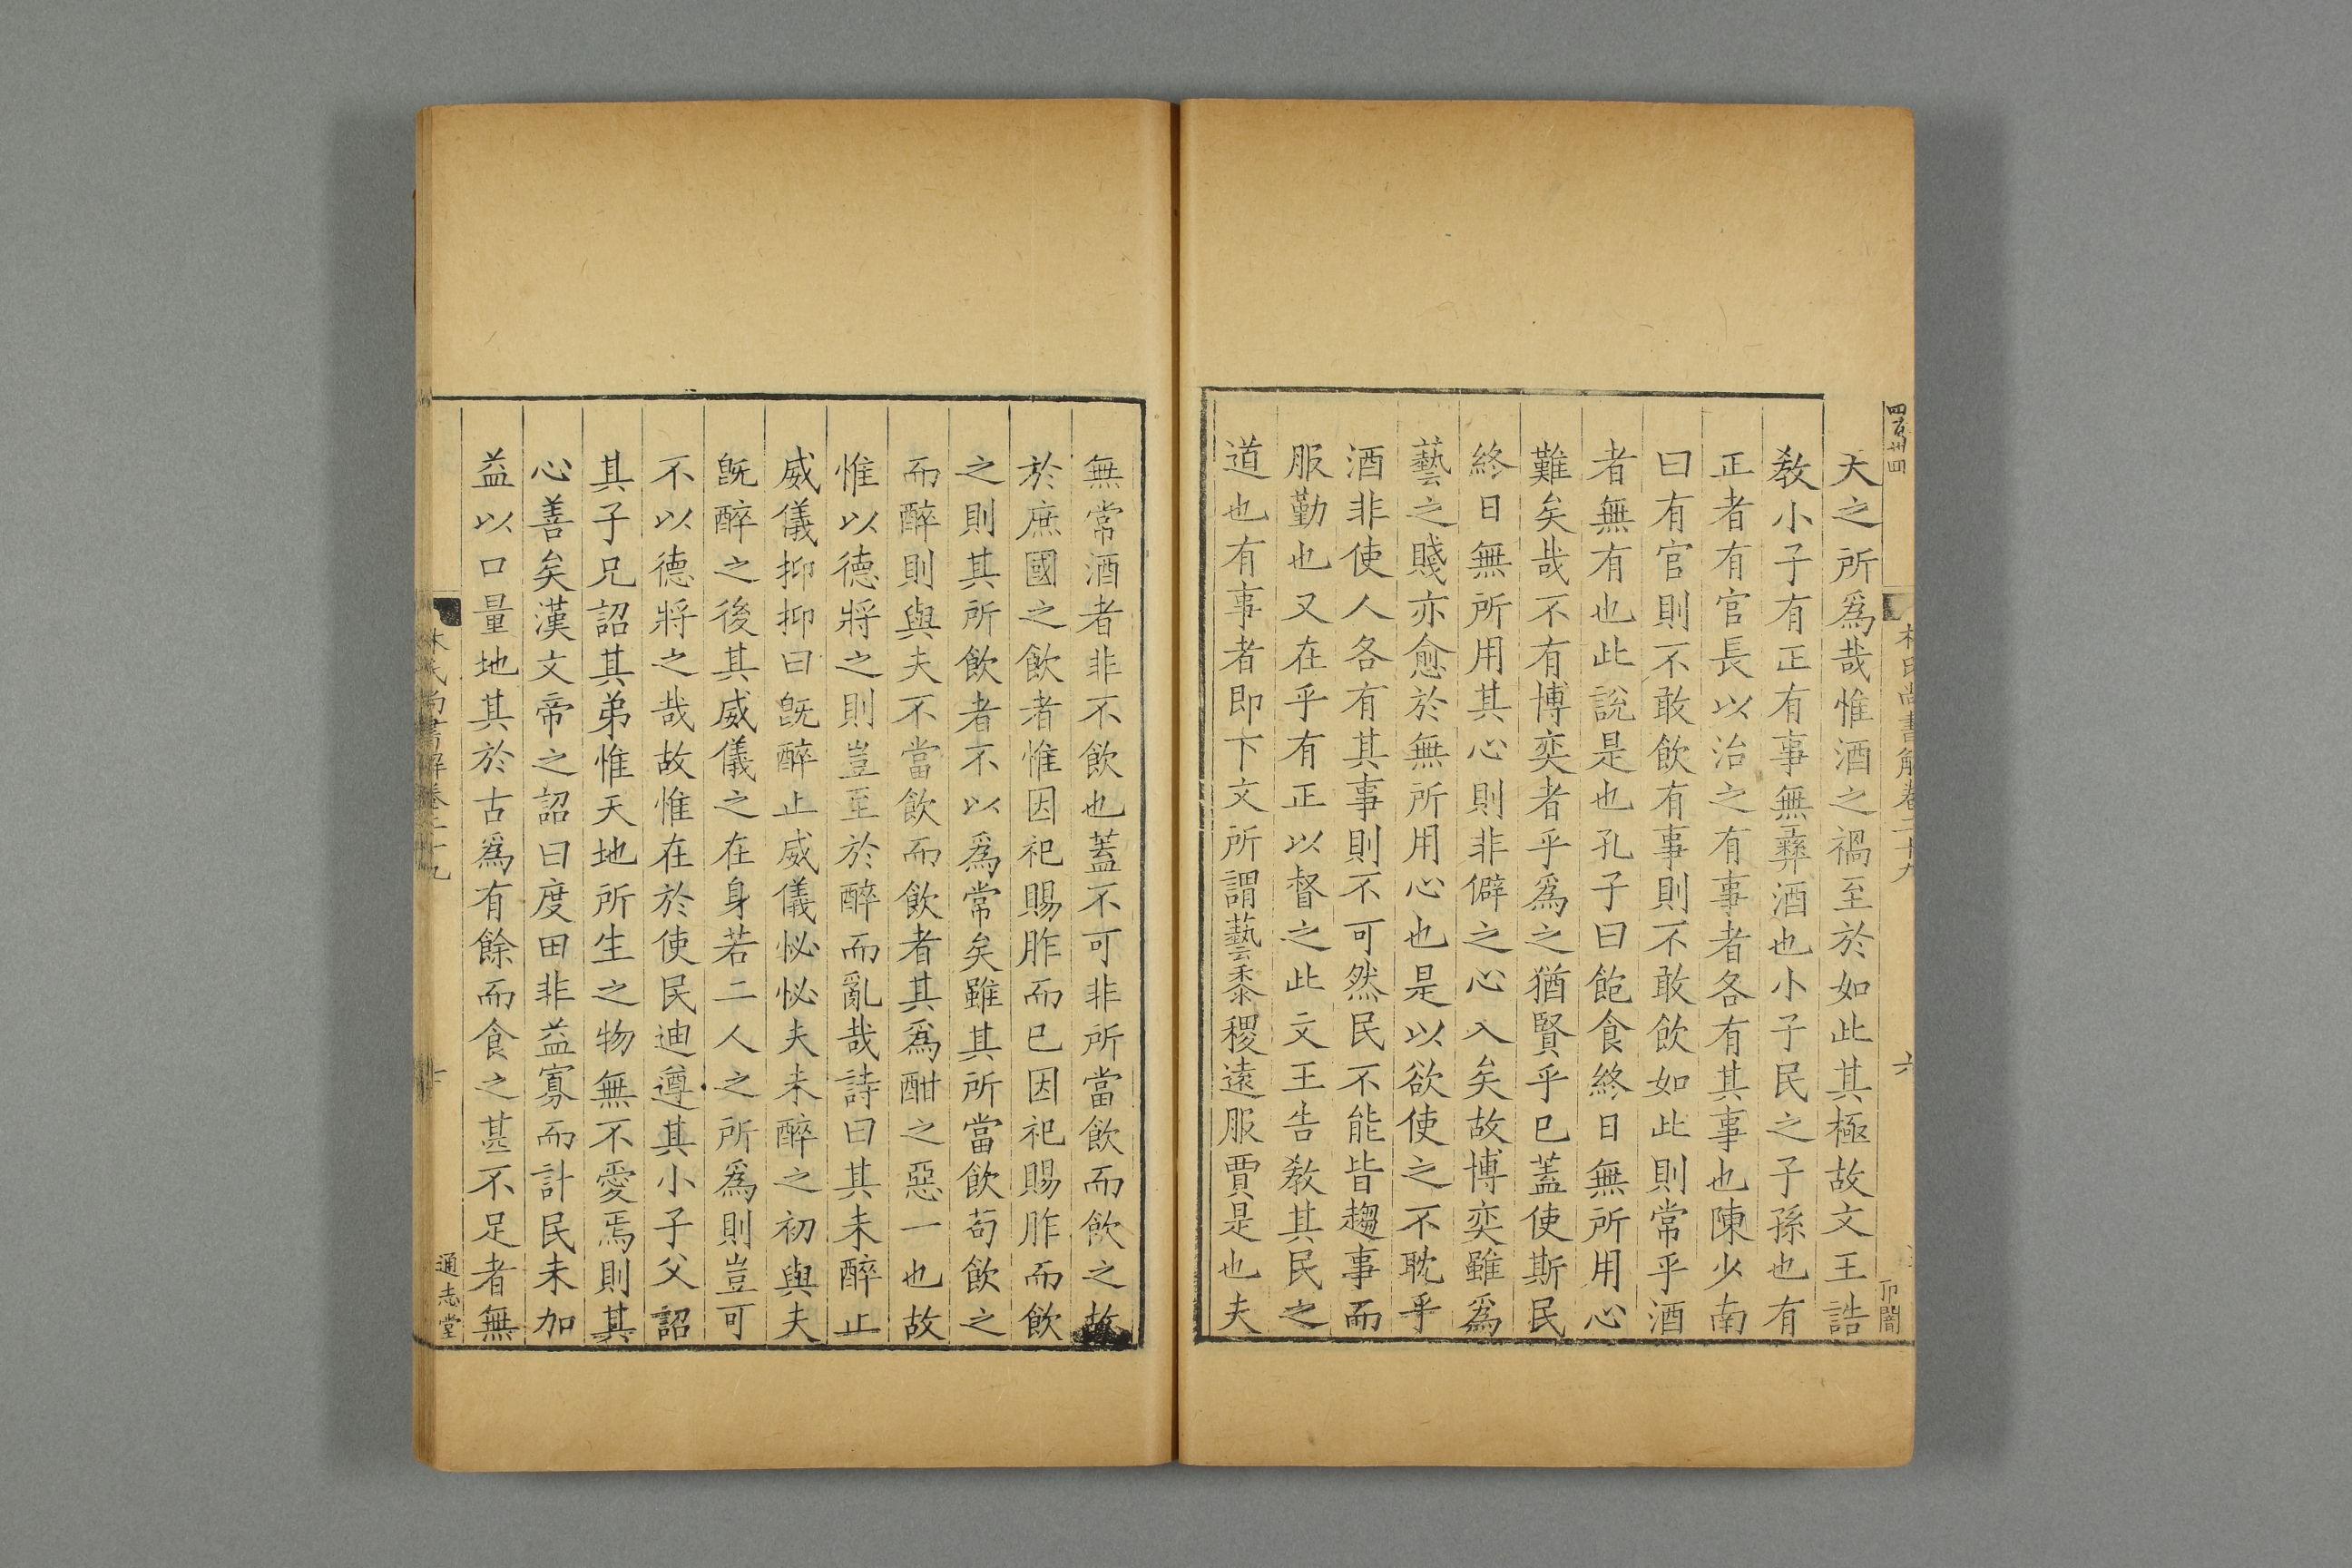 四百卅四
林氏尚書解卷二十九
六
天之所爲哉惟酒之禍至於如此其極故文王誥
敎小子有正有事無彞酒也小子民之子孫也有
正者有官長以治之有事者各有其事也陳少南
曰有官則不敢飮有事則不敢飮如此則常乎酒
者無有也此說是也孔子曰飽食終日無所用心
難矣哉不有博奕者乎爲之猶賢乎已蓋使斯民
終日無所用其心則非僻之心入矣故博奕雖爲
藝之賤亦愈於無所用心也是以欲使之不耽乎
酒非使人各有其事則不可然民不能皆趨事而
服勤也又在乎有正以督之此文王告敎其民之
道也有事者即下文所謂藝黍稷遠服賈是也夫
無常酒者非不飮也蓋不可非所當飮而飮之故
於庶國之飮者惟因祀賜胙而已因祀賜胙而飮
之則其所飮者不以爲常矣雖其所當飮苟飮之
而醉則與夫不當飮而飮者其爲酣之惡一也故
惟以德將之則豈至於醉而亂哉詩曰其未醉止
威儀抑抑曰旣醉止威儀怭怭夫未醉之初與夫
旣醉之後其威儀之在身若二人之所爲則豈可
不以德將之哉故惟在於使民迪遵其小子父詔
其子兄詔其弟惟天地所生之物無不愛焉則其
心善矣漢文帝之詔曰度田非益寡而計民未加
益以口量地其於古爲有餘而食之甚不足者無
林氏尚書解卷二十九
通志堂